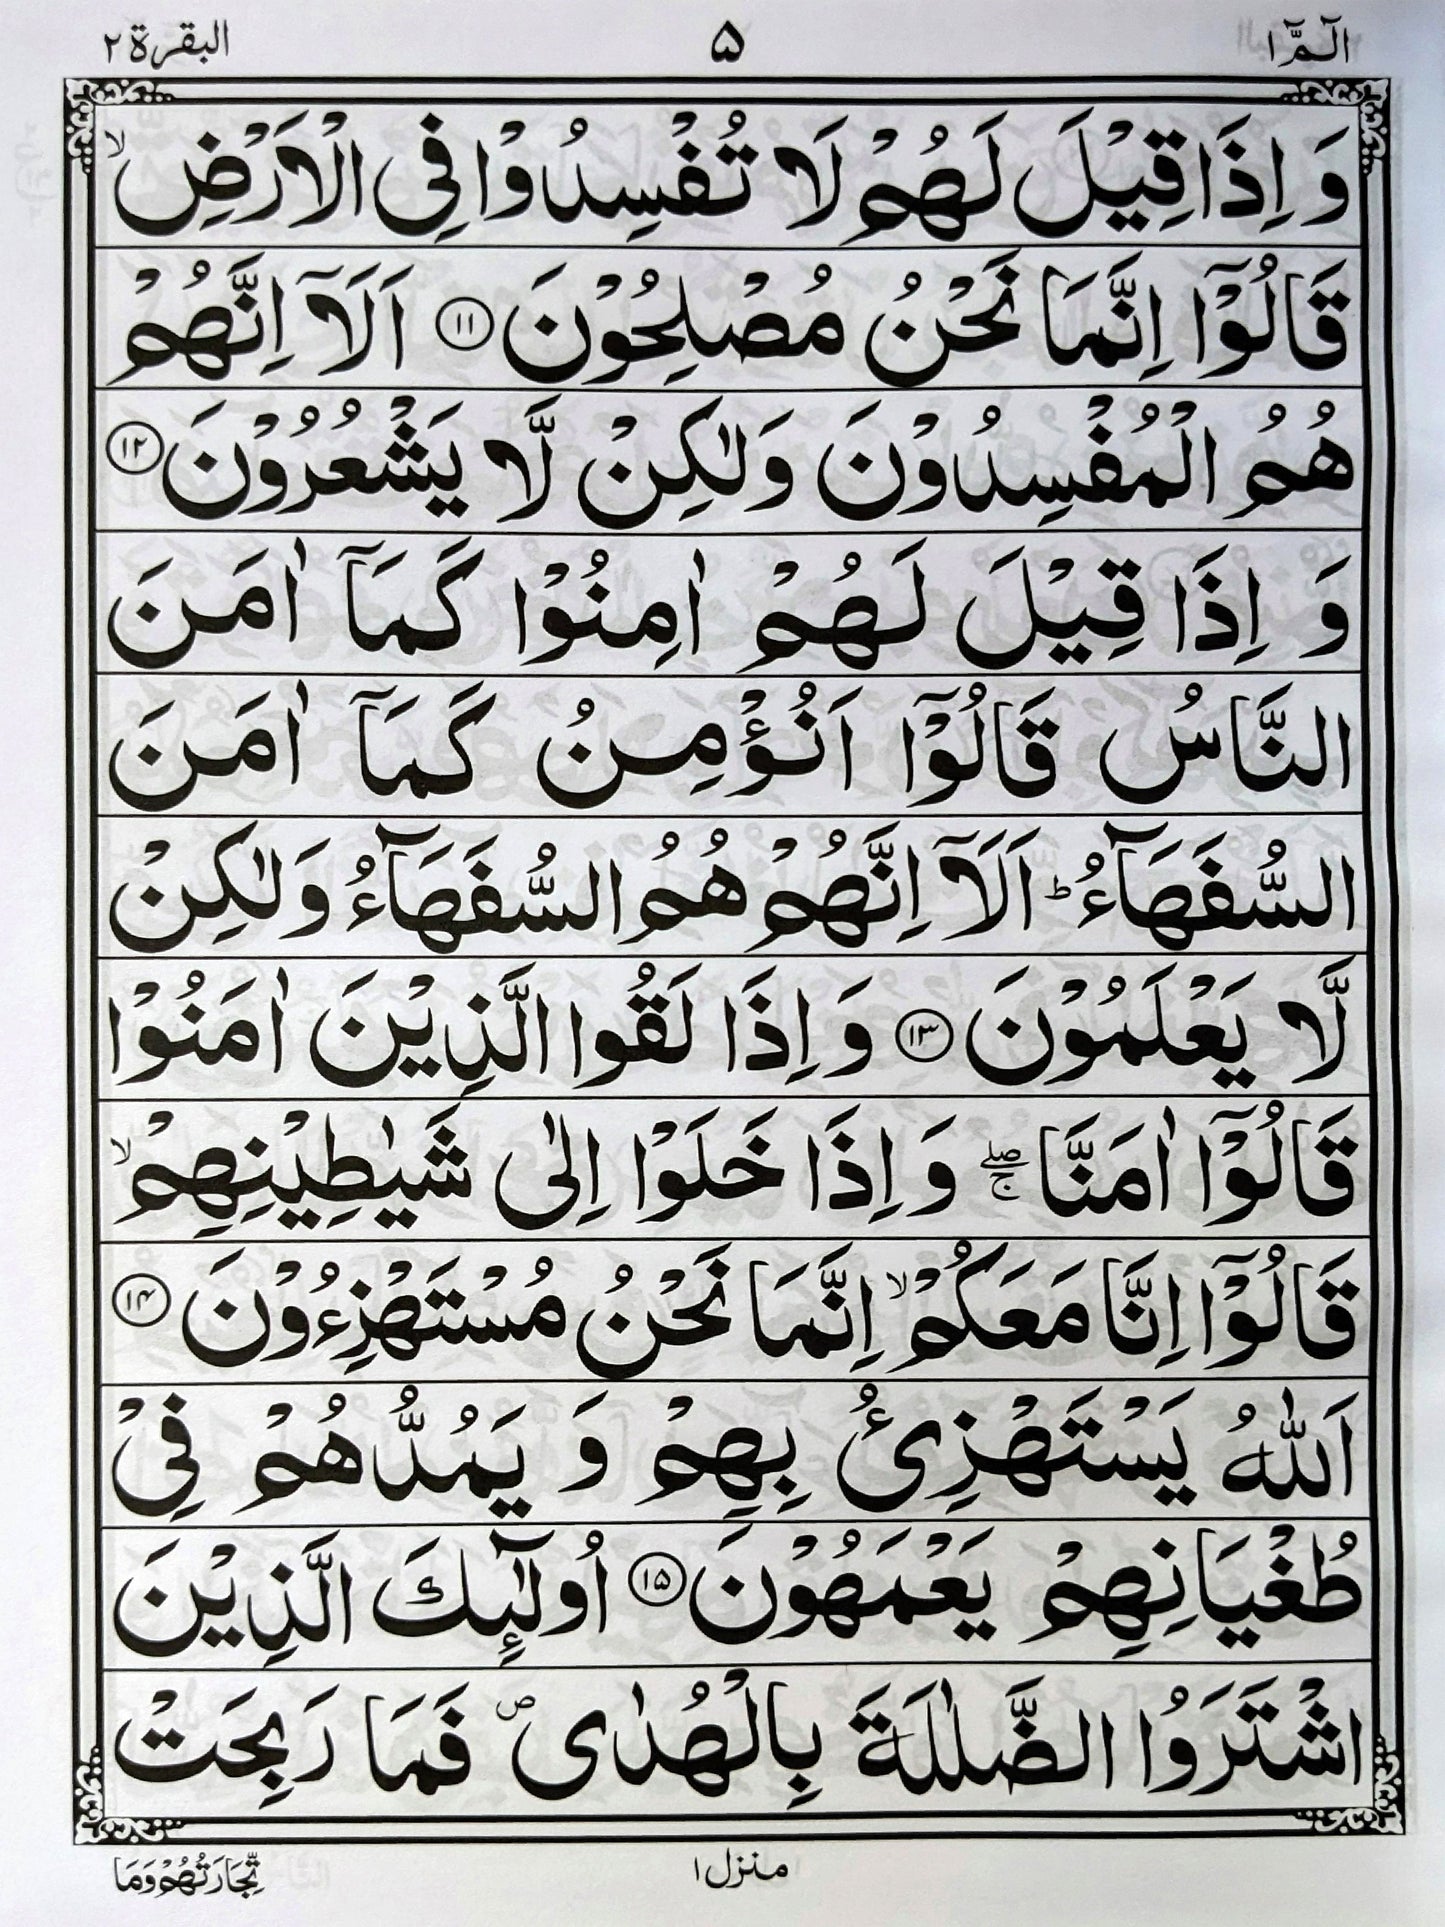 الٓمّٓ ۱ ۵ البقرة ۲
وَ اِذَا قِيْلَ لَهُمْ لَا تُفْسِدُوْا فِى الْاَرْضِ ۙ
قَالُوْٓا اِنَّمَا نَحْنُ مُصْلِحُوْنَ ۝۱۱ اَلَآ اِنَّهُمْ
هُمُ الْمُفْسِدُوْنَ وَلٰكِنْ لَّا يَشْعُرُوْنَ ۝۱۲
وَ اِذَا قِيْلَ لَهُمْ اٰمِنُوْا كَمَآ اٰمَنَ
النَّاسُ قَالُوْٓا اَنُؤْمِنُ كَمَآ اٰمَنَ
السُّفَهَآءُ ؕ اَلَآ اِنَّهُمْ هُمُ السُّفَهَآءُ وَلٰكِنْ
لَّا يَعْلَمُوْنَ ۝۱۳ وَ اِذَا لَقُوا الَّذِيْنَ اٰمَنُوْا
قَالُوْٓا اٰمَنَّا ۖۚ وَ اِذَا خَلَوْا اِلٰى شَيٰطِيْنِهِمْ ۙ
قَالُوْٓا اِنَّا مَعَكُمْ ۙ اِنَّمَا نَحْنُ مُسْتَهْزِءُوْنَ ۝۱۴
اَللّٰهُ يَسْتَهْزِئُ بِهِمْ وَ يَمُدُّهُمْ فِىْ
طُغْيَانِهِمْ يَعْمَهُوْنَ ۝۱۵ اُولٰٓئِكَ الَّذِيْنَ
اشْتَرَوُا الضَّلٰلَةَ بِالْهُدٰى ۪ فَمَا رَبِحَتْ
منزل ۱ تِّجَارَتُهُمْ وَمَا